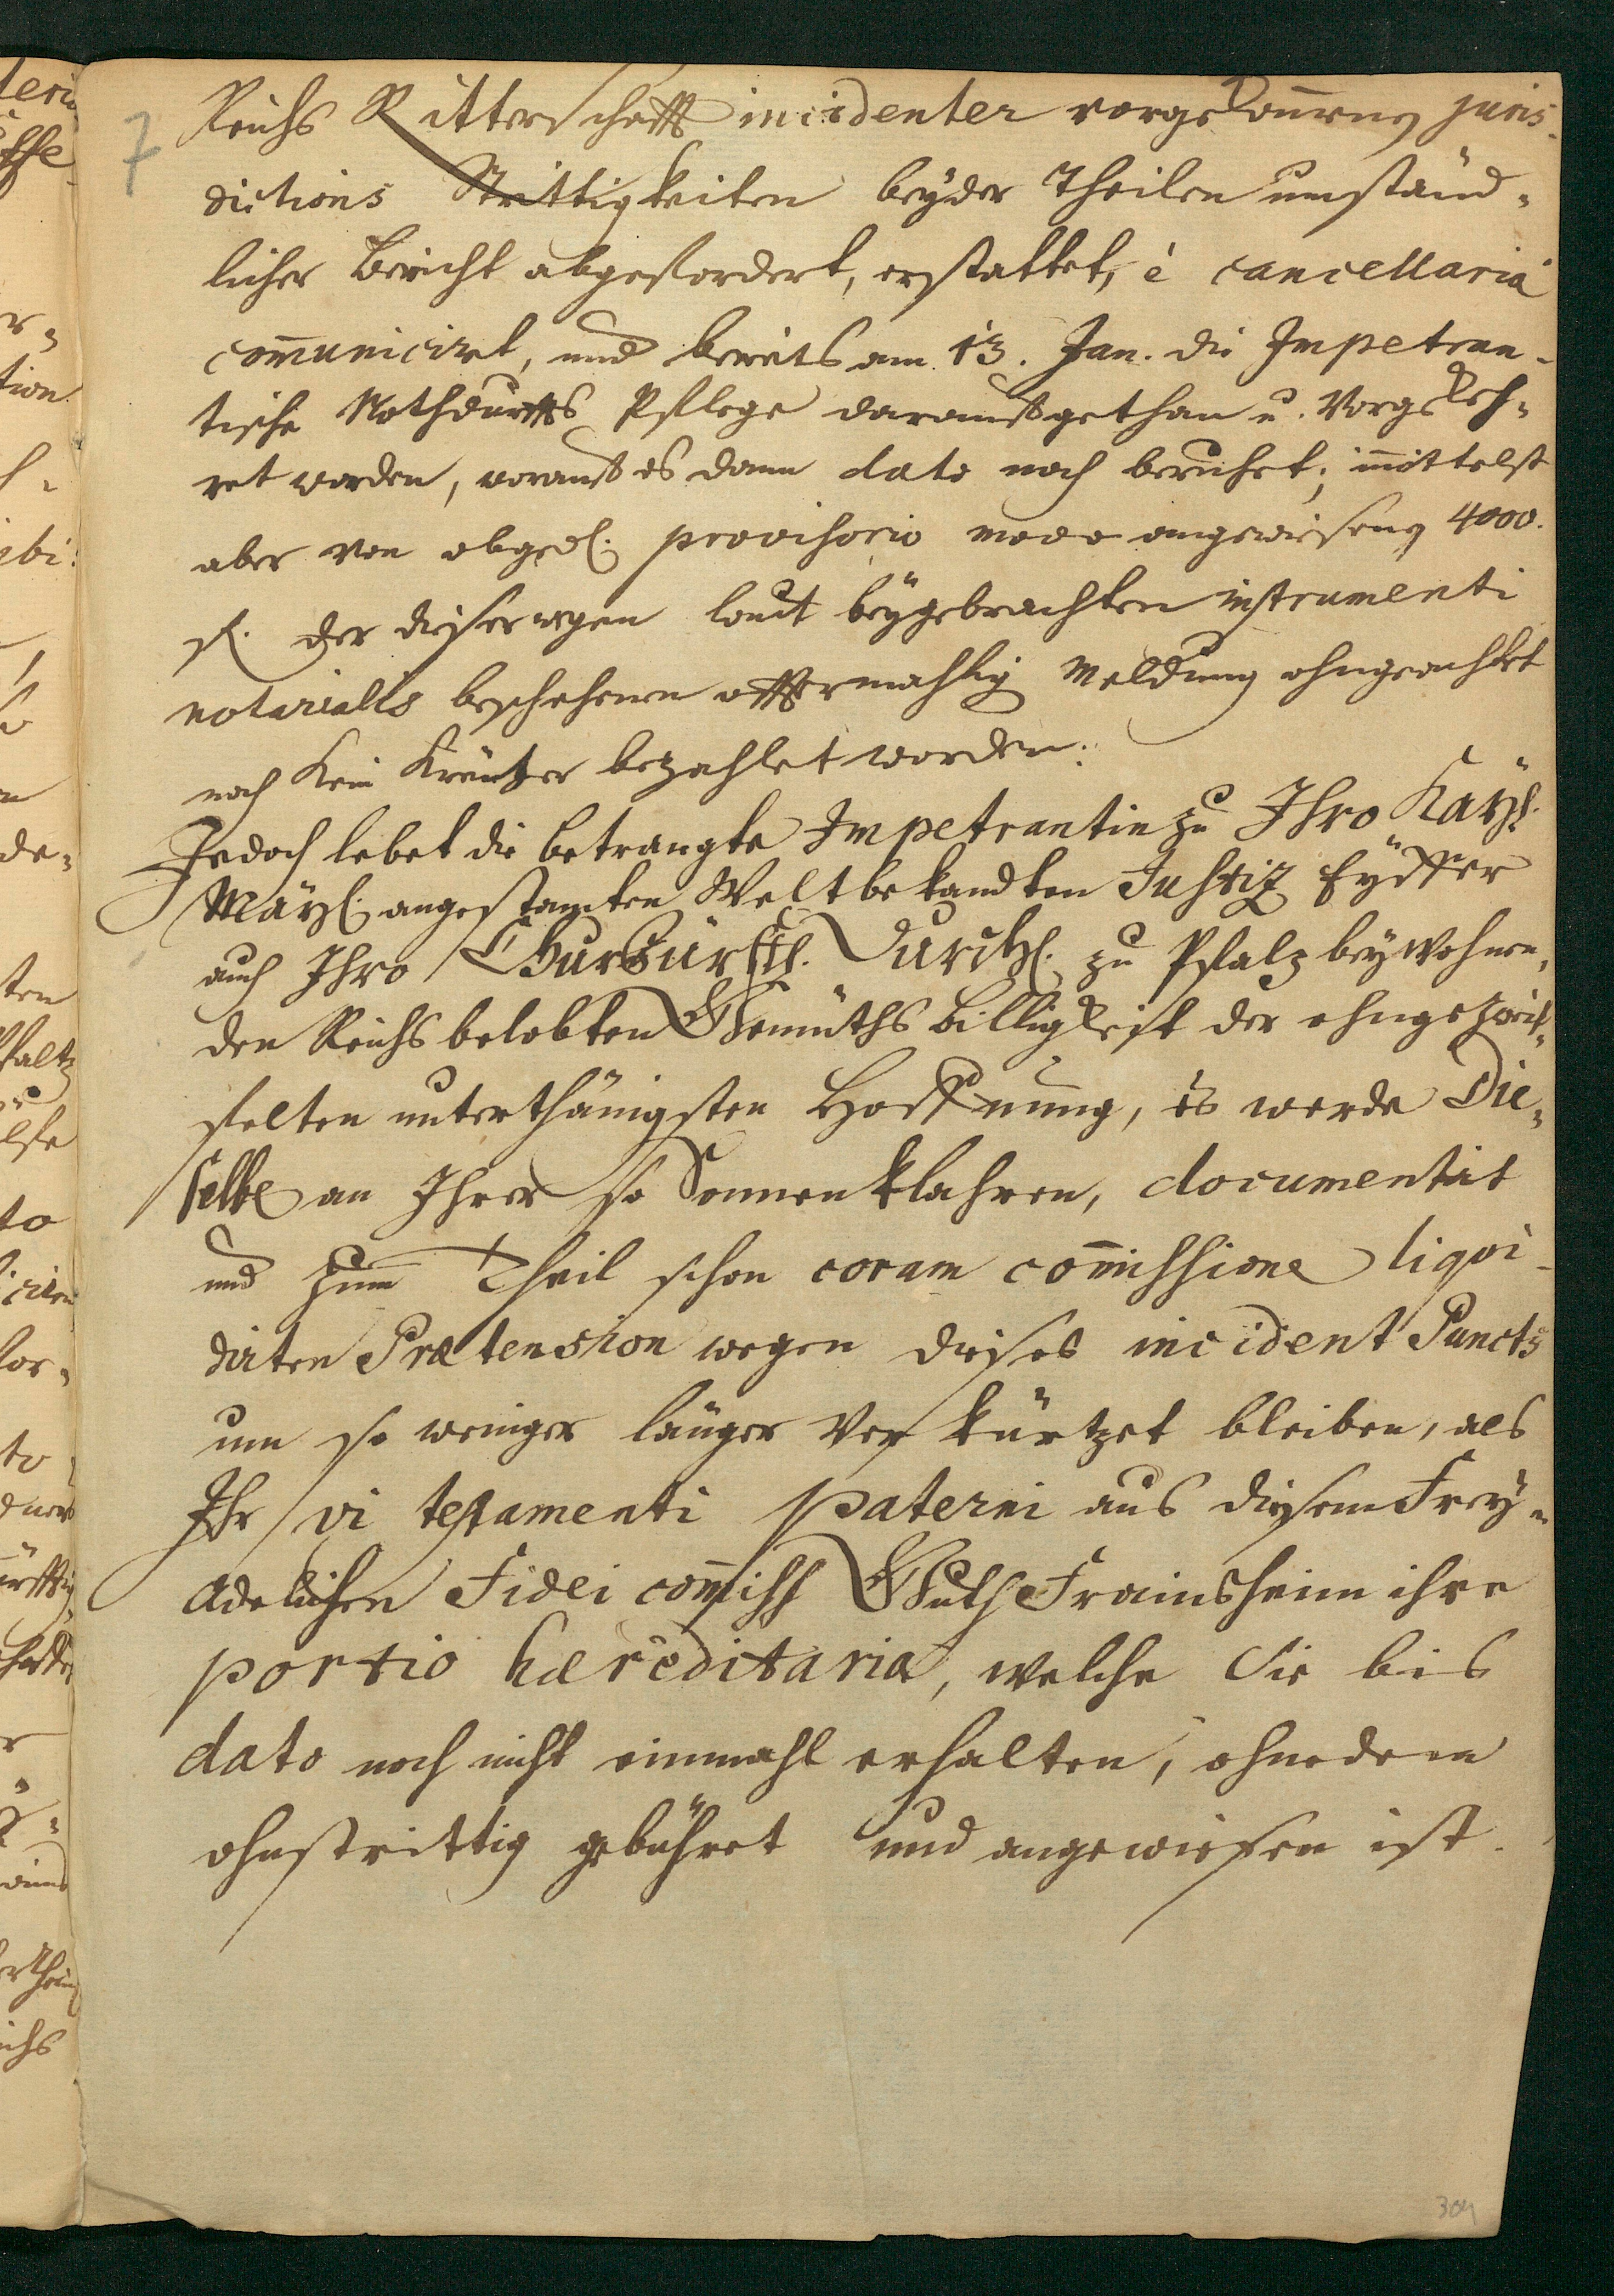 7
Reichs Ritterschafft incidenter vorgekom̄eney juris-
dictions Strittigkeiten beyder Theilen umständ-
licher Bericht abgefordert, erstattet, è cancellariâ
com̄unicirt, und bereits am 13. Jan. die Impetran-
tische Nothdurffts Pflege darauff gethan u. Vorgekeh-
ret worden, worauff es dann dato noch beruhet; im̄ittelst
aber von obged. provisorio modo angewiesene 4000.
fl. der dieserwegen laut beÿgebrachten instrumenti
notarialis beschehenen offtermahlig Meldung ohngeachtet
noch Kein Kreutzer bezahlet worden.
Jedoch lebet die betrangte Impetrantin zu Ihro Kaÿl.
Maÿl. angestamten Weltbekandten Justiz Eÿffer
auch Ihro Churfürstl. Durchl. zu Pfalz beywohnen-
den Reichs belobten Gemüths Billigkeit der ohngezweif-
felten unterthänigsten Hoffnung, es werde Die-
selbe an Ihrer so Sonnenklahren, documentirt
und zum Theil schon coram com̄issione liqvi-
dirten Prætension wegen dieses incident Puncts
um so weniger länger Verkürtzet bleiben, als
Ihr vi testamenti paterni aus diesem Frey-
Adelichen Fidei com̄iss Guth Frainsheim ihre
portio hæreditaria, welche Sie bis
dato noch nicht einmahl erhalten, ohnedem
ohnstrittig gebühret und angewiesen ist.
304